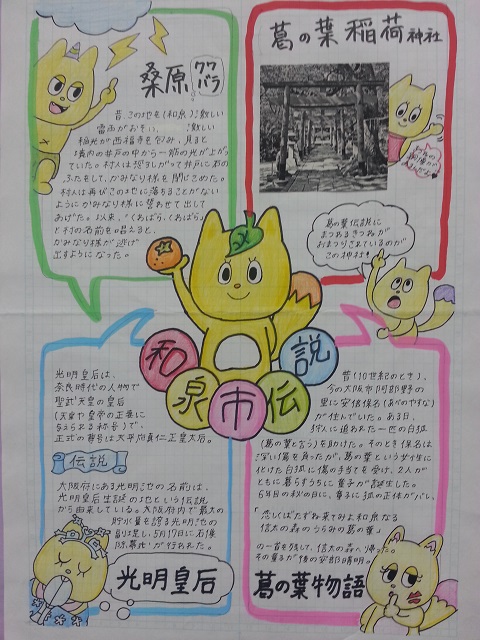 桑原
クワバラ
昔この地を(和泉)激しい
雷雨がおそい、激しい
稲光が西福寺を包み、見ると
境内の井戸の中から一筋の光が上がっ
ていた。村人は恐るしがって井戸に石の
ふたをして、かみなり様を閉じこめた。
村人は再びこの地に落ちることがない
ようにかみなり様に誓わせて出して
あげた。以来、「くわばら、くわばら」
と村の名前を唱えると、
かみなり様が逃げ
出すようになった。
葛の葉稲荷神社
葛の葉伝説に
まつわるきつねが
おまつりされているのが
この神社!
和泉市伝説
光明皇后は、
奈良時代の人物で
聖武天皇の皇后
(天皇や皇帝の正妻に
与えられる称号)で、
正式の尊号は天平応真仁正皇太后。
伝説
大阪府にある光明池の名前は、
光明皇后生誕の地という伝説
から由来している。大阪府内で最大の
貯水量を誇る光明池の
光明皇后
昔(10世紀のとき)、
今の大阪市阿部野の
里に安倍保名(あべのやすな)
が住んでいた。ある日、
狩人に追われた一匹の白狐
(葛の葉と言う)を助けた。そのとき保名は
深い傷を負ったが、葛の葉という女性に
化けた白狐に傷の手当てを受け、2人が
ともに暮らすうちに童子が誕生した。
6年目の秋の日に、童子に狐の正体がバレ、
「恋しくばたずね来てみよ和泉なる
信太の森のうらみの葛の葉」
の一首を残して、信太の森へ帰った。
その童子が後の安部晴明。
葛の葉物語